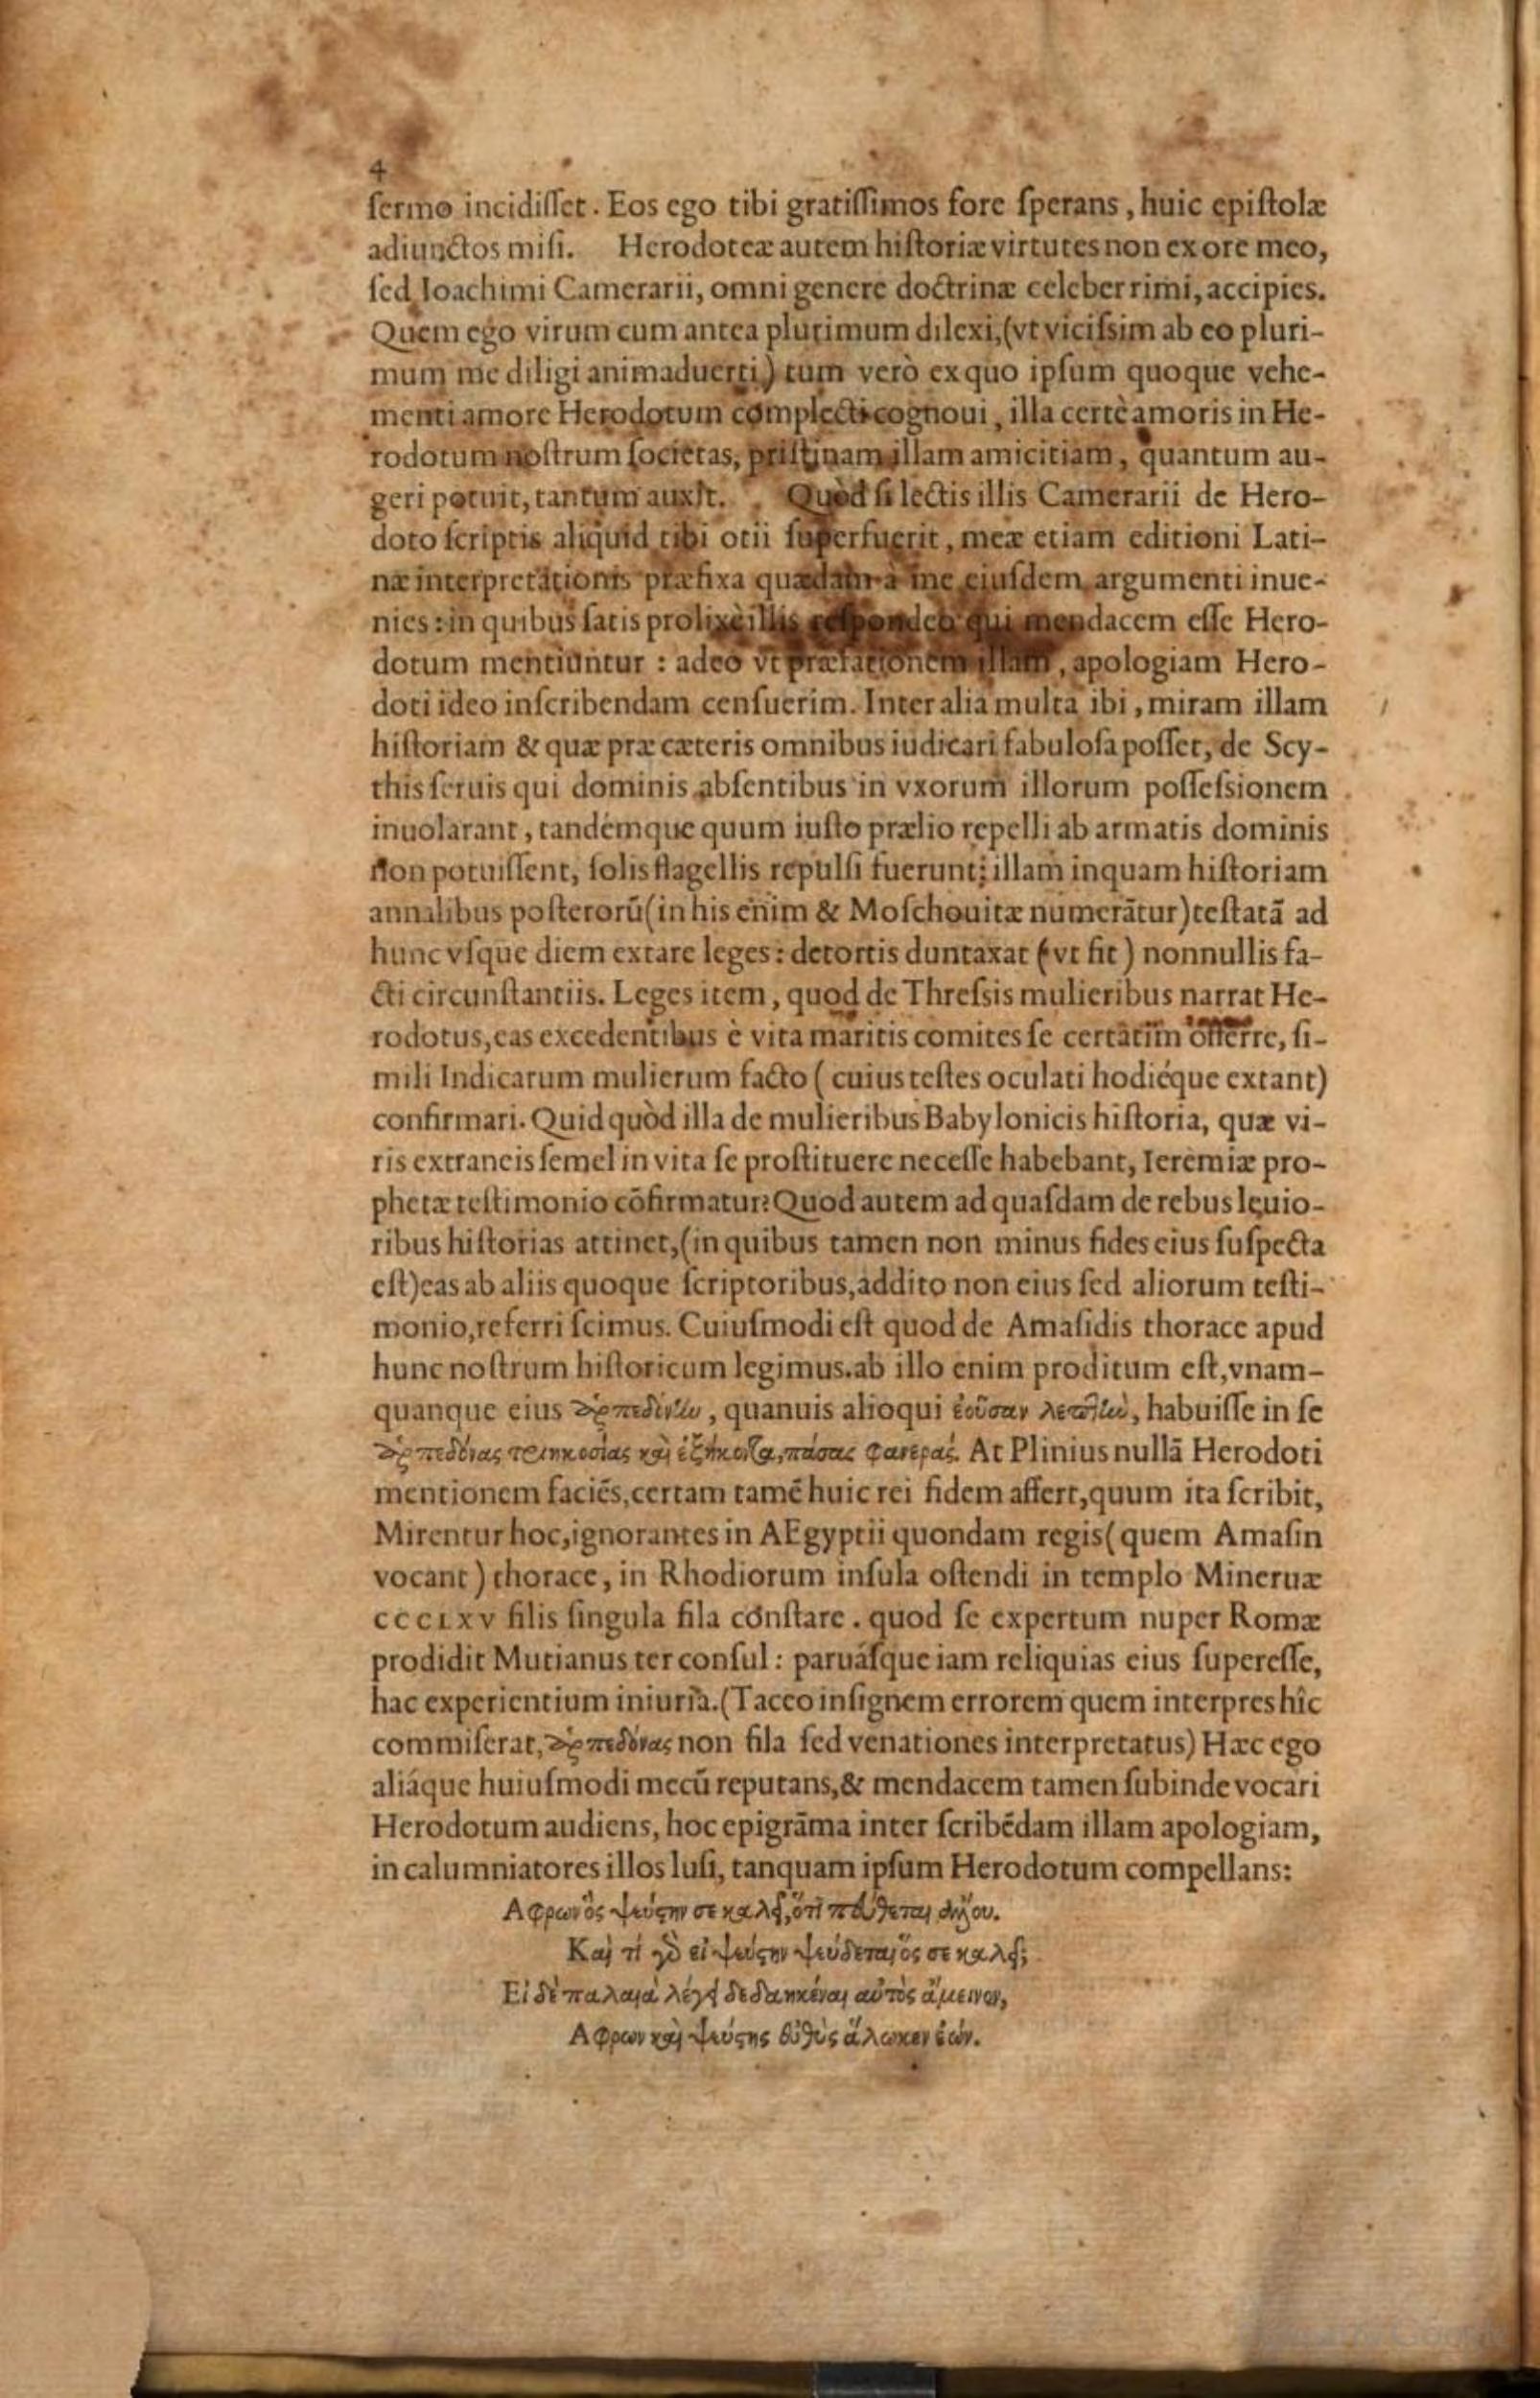 4
ſermo incidiſſet. Eos ego tibi gratiſſimos fore ſperans, huic epiſtolæ
adiunctos miſi. Herodoteæ autem hiſtoriæ virtutes non ex ore meo,
ſed Ioachimi Camerarii, omni genere doctrinæ celeberrimi, accipies.
Quem ego virum cum antea plurimum dilexi, (vt viciſsim ab eo pluri-
mum me diligi animaduerti) tum verò ex quo ipſum quoque vehe-
menti amore Herodotum complecti cognoui, illa certè amoris in He-
rodotum noſtrum ſocietas, priſtinam illam amicitiam, quantum au-
geri potuit, tantum auxit. Quòd ſi lectis illis Camerarii de Hero-
doto ſcriptis aliquid tibi otii ſuperfuerit, meæ etiam editioni Lati-
næ interpretationis præfixa quædam à me eiuſdem argumenti inue-
nies: in quibus ſatis prolixè illis reſpondeo qui mendacem eſſe Hero-
dotum mentiuntur: adeo vt præfationem illam, apologiam Hero-
doti ideo inſcribendam cenſuerim. Inter alia multa ibi, miram illam
hiſtoriam & quæ præ cæteris omnibus iudicari fabuloſa poſſet, de Scy-
this ſeruis qui dominis abſentibus in vxorum illorum poſſeſsionem
inuolarant, tandémque quum iuſto prælio repelli ab armatis dominis
non potuiſſent, ſolis flagellis repulſi fuerunt; illam inquam hiſtoriam
annalibus poſterorũ (in his enim & Moſchouitæ numerãtur) teſtatã ad
hunc vſque diem extare leges: detortis duntaxat (vt fit) nonnullis fa-
cti circunſtantiis. Leges item, quod de Threſsis mulieribus narrat He-
rodotus, eas excedentibus è vita maritis comites ſe certatim offerre, ſi-
mili Indicarum mulierum facto (cuius teſtes oculati hodiéque extant)
confirmari. Quid quòd illa de mulieribus Babylonicis hiſtoria, quæ vi-
ris extraneis ſemel in vita ſe proſtituere neceſſe habebant, Ieremiæ pro-
phetæ teſtimonio cõfirmatur? Quod autem ad quaſdam de rebus leuio-
ribus hiſtorias attinet, (in quibus tamen non minus fides eius ſuſpecta
eſt) eas ab aliis quoque ſcriptoribus, addito non eius ſed aliorum teſti-
monio, referri ſcimus. Cuiuſmodi eſt quod de Amaſidis thorace apud
hunc noſtrum hiſtoricum legimus. ab illo enim proditum eſt, vnam-
quanque eius ἁρπεδόνην, quanuis alioqui ἐοῦσαν λεπτὴν, habuiſſe in ſe
ἁρπεδόνας τριηκοσίας καὶ ἑξήκοντα, πάσας φανεράς. At Plinius nullã Herodoti
mentionem faciẽs, certam tamẽ huic rei fidem affert, quum ita ſcribit,
Mirentur hoc, ignorantes in AEgyptii quondam regis (quem Amaſin
vocant) thorace, in Rhodiorum inſula oſtendi in templo Mineruæ
CCCLXV filis ſingula fila conſtare. quod ſe expertum nuper Romæ
prodidit Mutianus ter conſul: paruáſque iam reliquias eius ſupereſſe,
hac experientium iniuria. (Taceo inſignem errorem quem interpres hîc
commiſerat, ἁρπεδόνας non fila ſed venationes interpretatus) Hæc ego
aliáque huiuſmodi mecũ reputans, & mendacem tamen ſubinde vocari
Herodotum audiens, hoc epigrãma inter ſcribẽdam illam apologiam,
in calumniatores illos luſi, tanquam ipſum Herodotum compellans:
Αφρων ὃς ψεύστην σε καλεῖ, ὅτι πεύθεται ἄλλου.
Καὶ τί γὰρ εἰ ψεύστην ψεύδεται ὅς σε καλεῖ;
Εἰ δὲ παλαιὰ λέγει δεδαηκέναι αὐτὸς ἄμεινον,
Αφρων καὶ ψεύστης εὐθὺς ἅλωκεν ἐών.